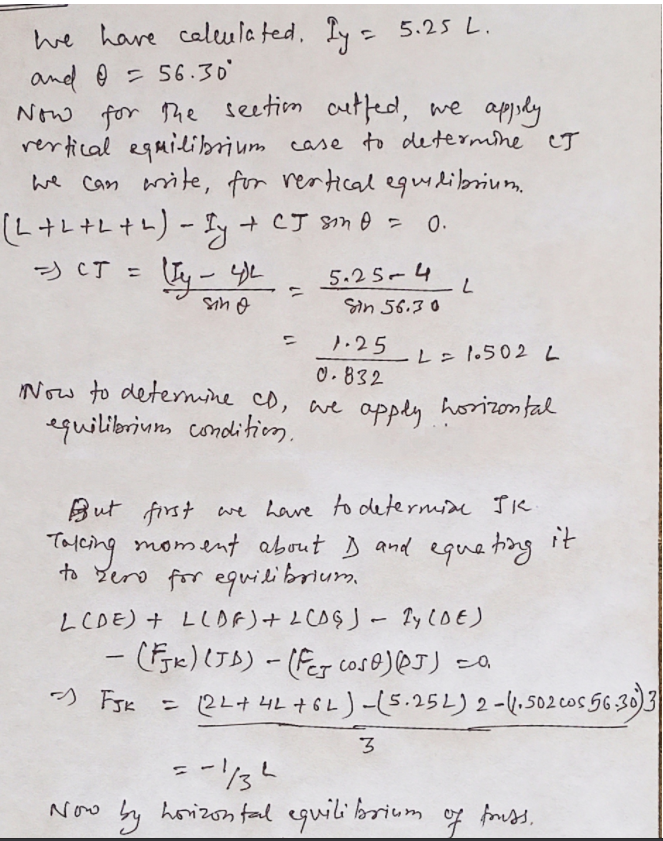 we have calculated. Iy = 5.25 L.
and θ = 56.30°
Now for the section cutted, we apply
vertical equilibrium case to determine CJ
we can write, for vertical equilibrium.
(L+L+L+L) - Iy + CJ sin θ = 0.
⇒ CJ = (Iy - 4)L / sin θ = 5.25-4 / sin 56.30 L
= 1.25 / 0.832 L = 1.502 L
Now to determine CD, we apply horizontal
equilibrium condition.
But first we have to determine JK
Taking moment about D and equating it
to zero for equilibrium.
L(DE) + L(DF) + L(DG) - Iy(DE)
- (FJK)(JD) - (FCJ cosθ)(DJ) = 0.
⇒ FJK = (2L+4L+6L)-(5.25L)2-(1.502cos56.30)3 / 3
= -1/3 L
Now by horizontal equilibrium of truss.